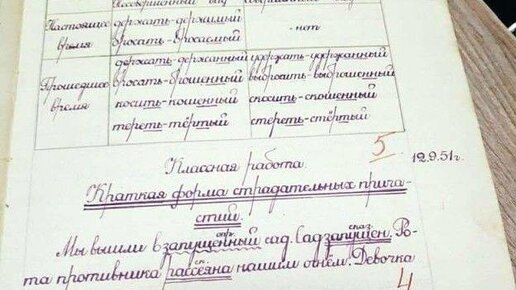 Несовершенный вид Совершенный вид
Настоящее время
держать-держимый
бросать-бросаемый
- нет
Прошедшее время
держать-держанный
бросать-брошенный
носить-ношенный
тереть-тёртый
удержать-удержанный
выбросить-выброшенный
сносить-сношенный
стереть-стёртый
5
Классная работа.
12.9.51г.
Краткая форма страдательных прича-
стий.
опр.
сказ.
Мы вышли в запущенный сад. Сад запущен. Ро-
ск.
та противника рассеяна нашим огнём. Девочка
4